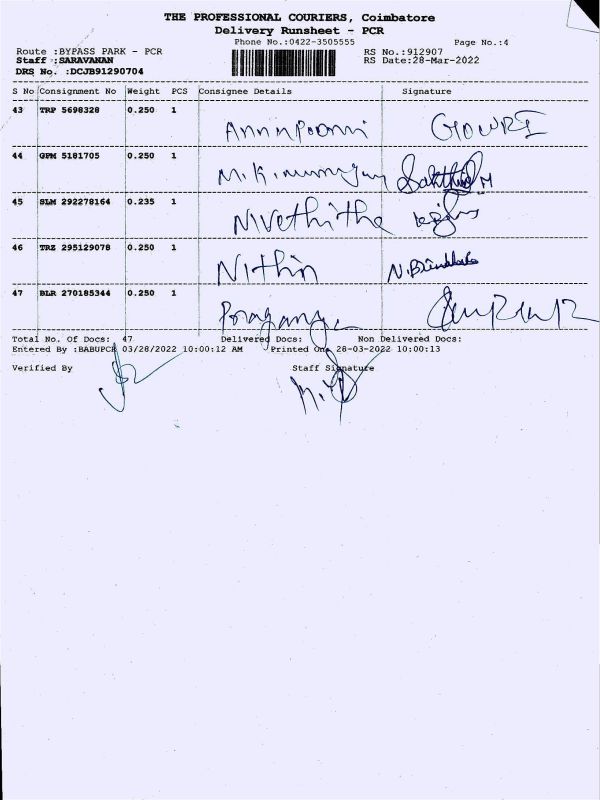 THE PROFESSIONAL COURIERS, Coimbatore
Delivery Runsheet - PCR
Phone No.:0422-3505555 Page No.:4
Route :BYPASS PARK - PCR RS No.:912907
Staff :SARAVANAN RS Date:28-Mar-2022
DRS No. :DCJB91290704
S No Consignment No Weight PCS Consignee Details Signature
43 TRP 5698328 0.250 1 Annnpoorni GOWRI
44 GPM 5181705 0.250 1 M.K. Sakthivel M
45 SLM 292278164 0.235 1 Nivethitha
46 TRZ 295129078 0.250 1 Nithin
47 BLR 270185344 0.250 1
Total No. Of Docs: 47 Delivered Docs: Non Delivered Docs:
Entered By :BABUPCR 03/28/2022 10:00:12 AM Printed On, 28-03-2022 10:00:13
Verified By Staff Signature